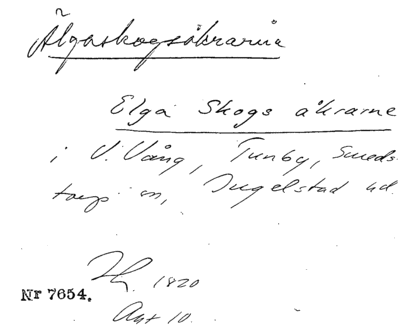 Älgaskogsåkrarna
Elga Skogs åkrarne
i V. Vång, Tunby, Smeds-
torps sn, Ingelstad hd.
1820
Nr 7654.
Akt 10.